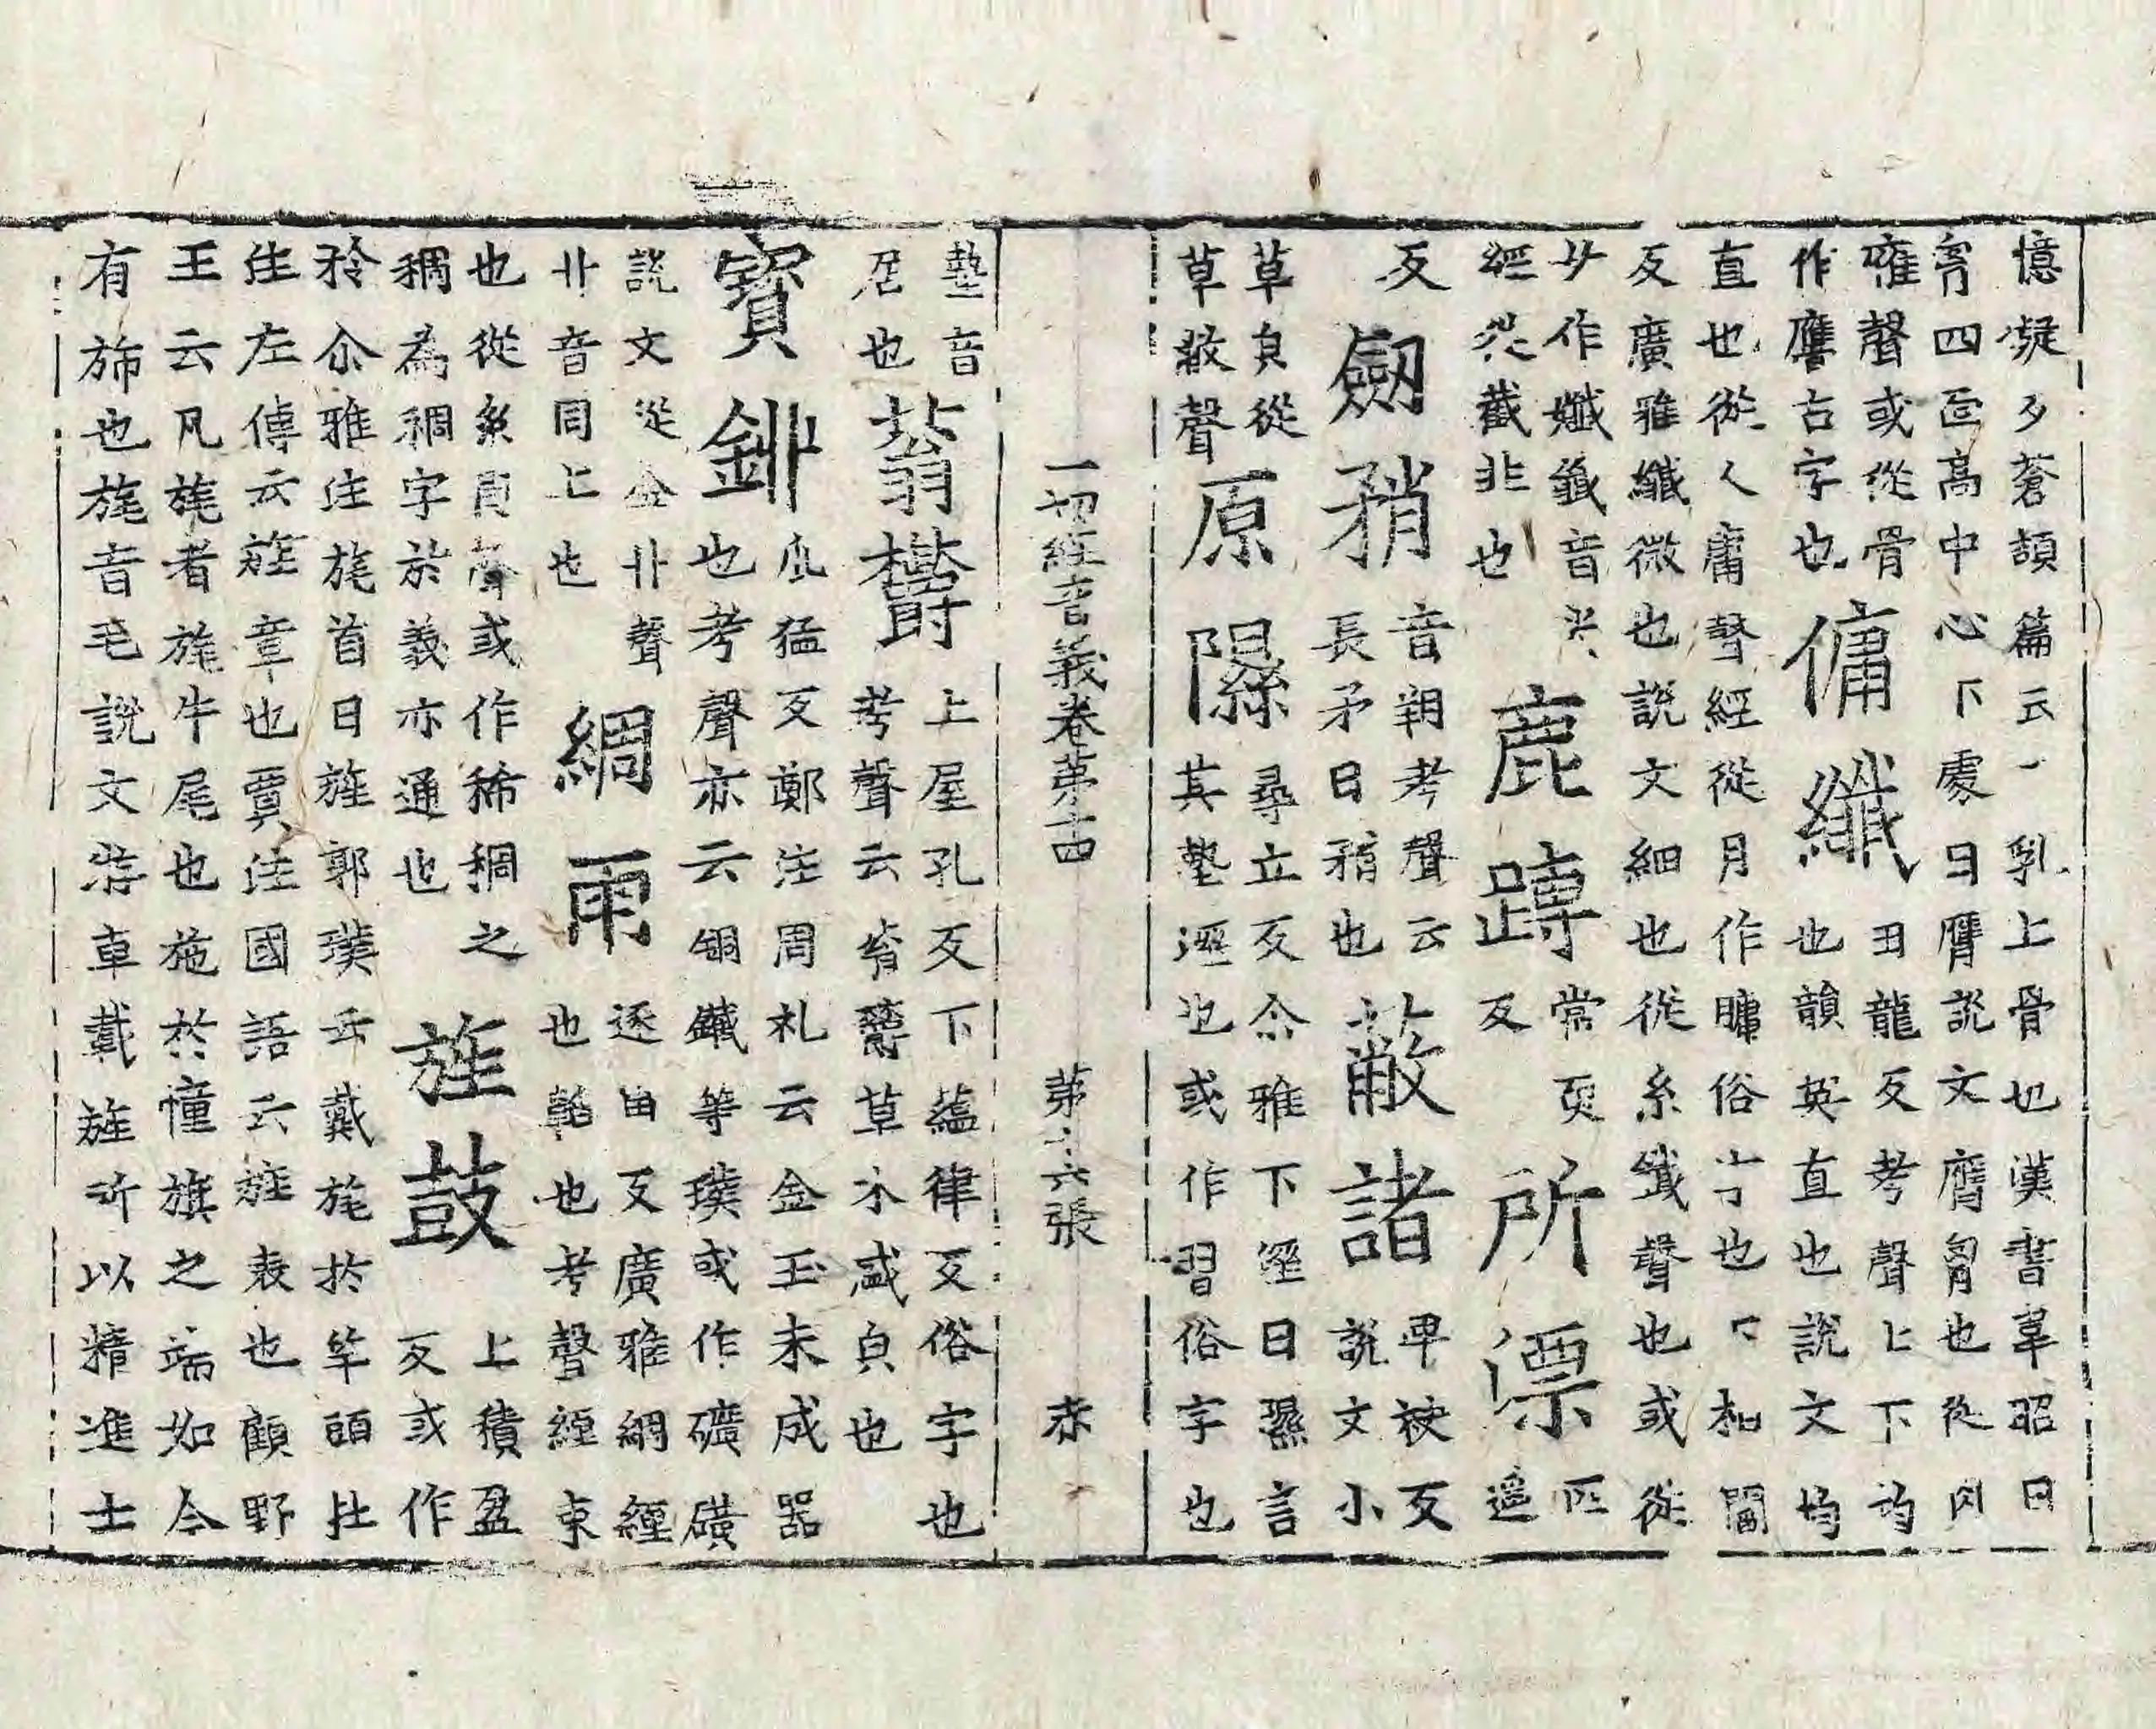 憶凝夕蒼頡篇云一乳上骨也漢書韋昭曰
肓四匝高中心下處曰膺說文膺胷也從肉
雍聲或從骨 丑龍反考聲上下均
作膺古字也傭纖也韻英直也說文均
直也從人庸聲經從月作𦟛俗字也 相閻
反廣雅纖微也說文細也從糸韱聲也或從
女作孅韱音 鹿蹲常耎所漂匹
經從截非也 反 遙
反 劒矟音朔考聲云 蔽諸卑袂反
長矛曰矟也 說文小
草皃從 原隰尋立反尒雅下溼曰隰言
草敝聲 其墊溼也或作習俗字也
一切經音義卷第十四 第十六張 赤
墊音 蓊欝上屋孔反下蘊律反俗字也
居也 考聲云蓊欝草木盛皃也
寶鉡 瓜猛反鄭注周礼云金玉未成器
也考聲亦云銅鐵等璞或作礦磺
說文從金丱聲 綢雨逐由反廣雅綢經
丱音同上也 也韜也考聲經束
也從糸周聲或作稀稠之 旌鼓上積盈
稠為稠字於義亦通也 反或作
旍尒雅注旄首曰旌郭璞云戴旄於竿頭註
注左傳云旌章也賈注國語云旌表也顧野
王云凡旄者旄牛尾也施於幢旗之端如今
有旆也旄音毛說文游車載旌所以精進士